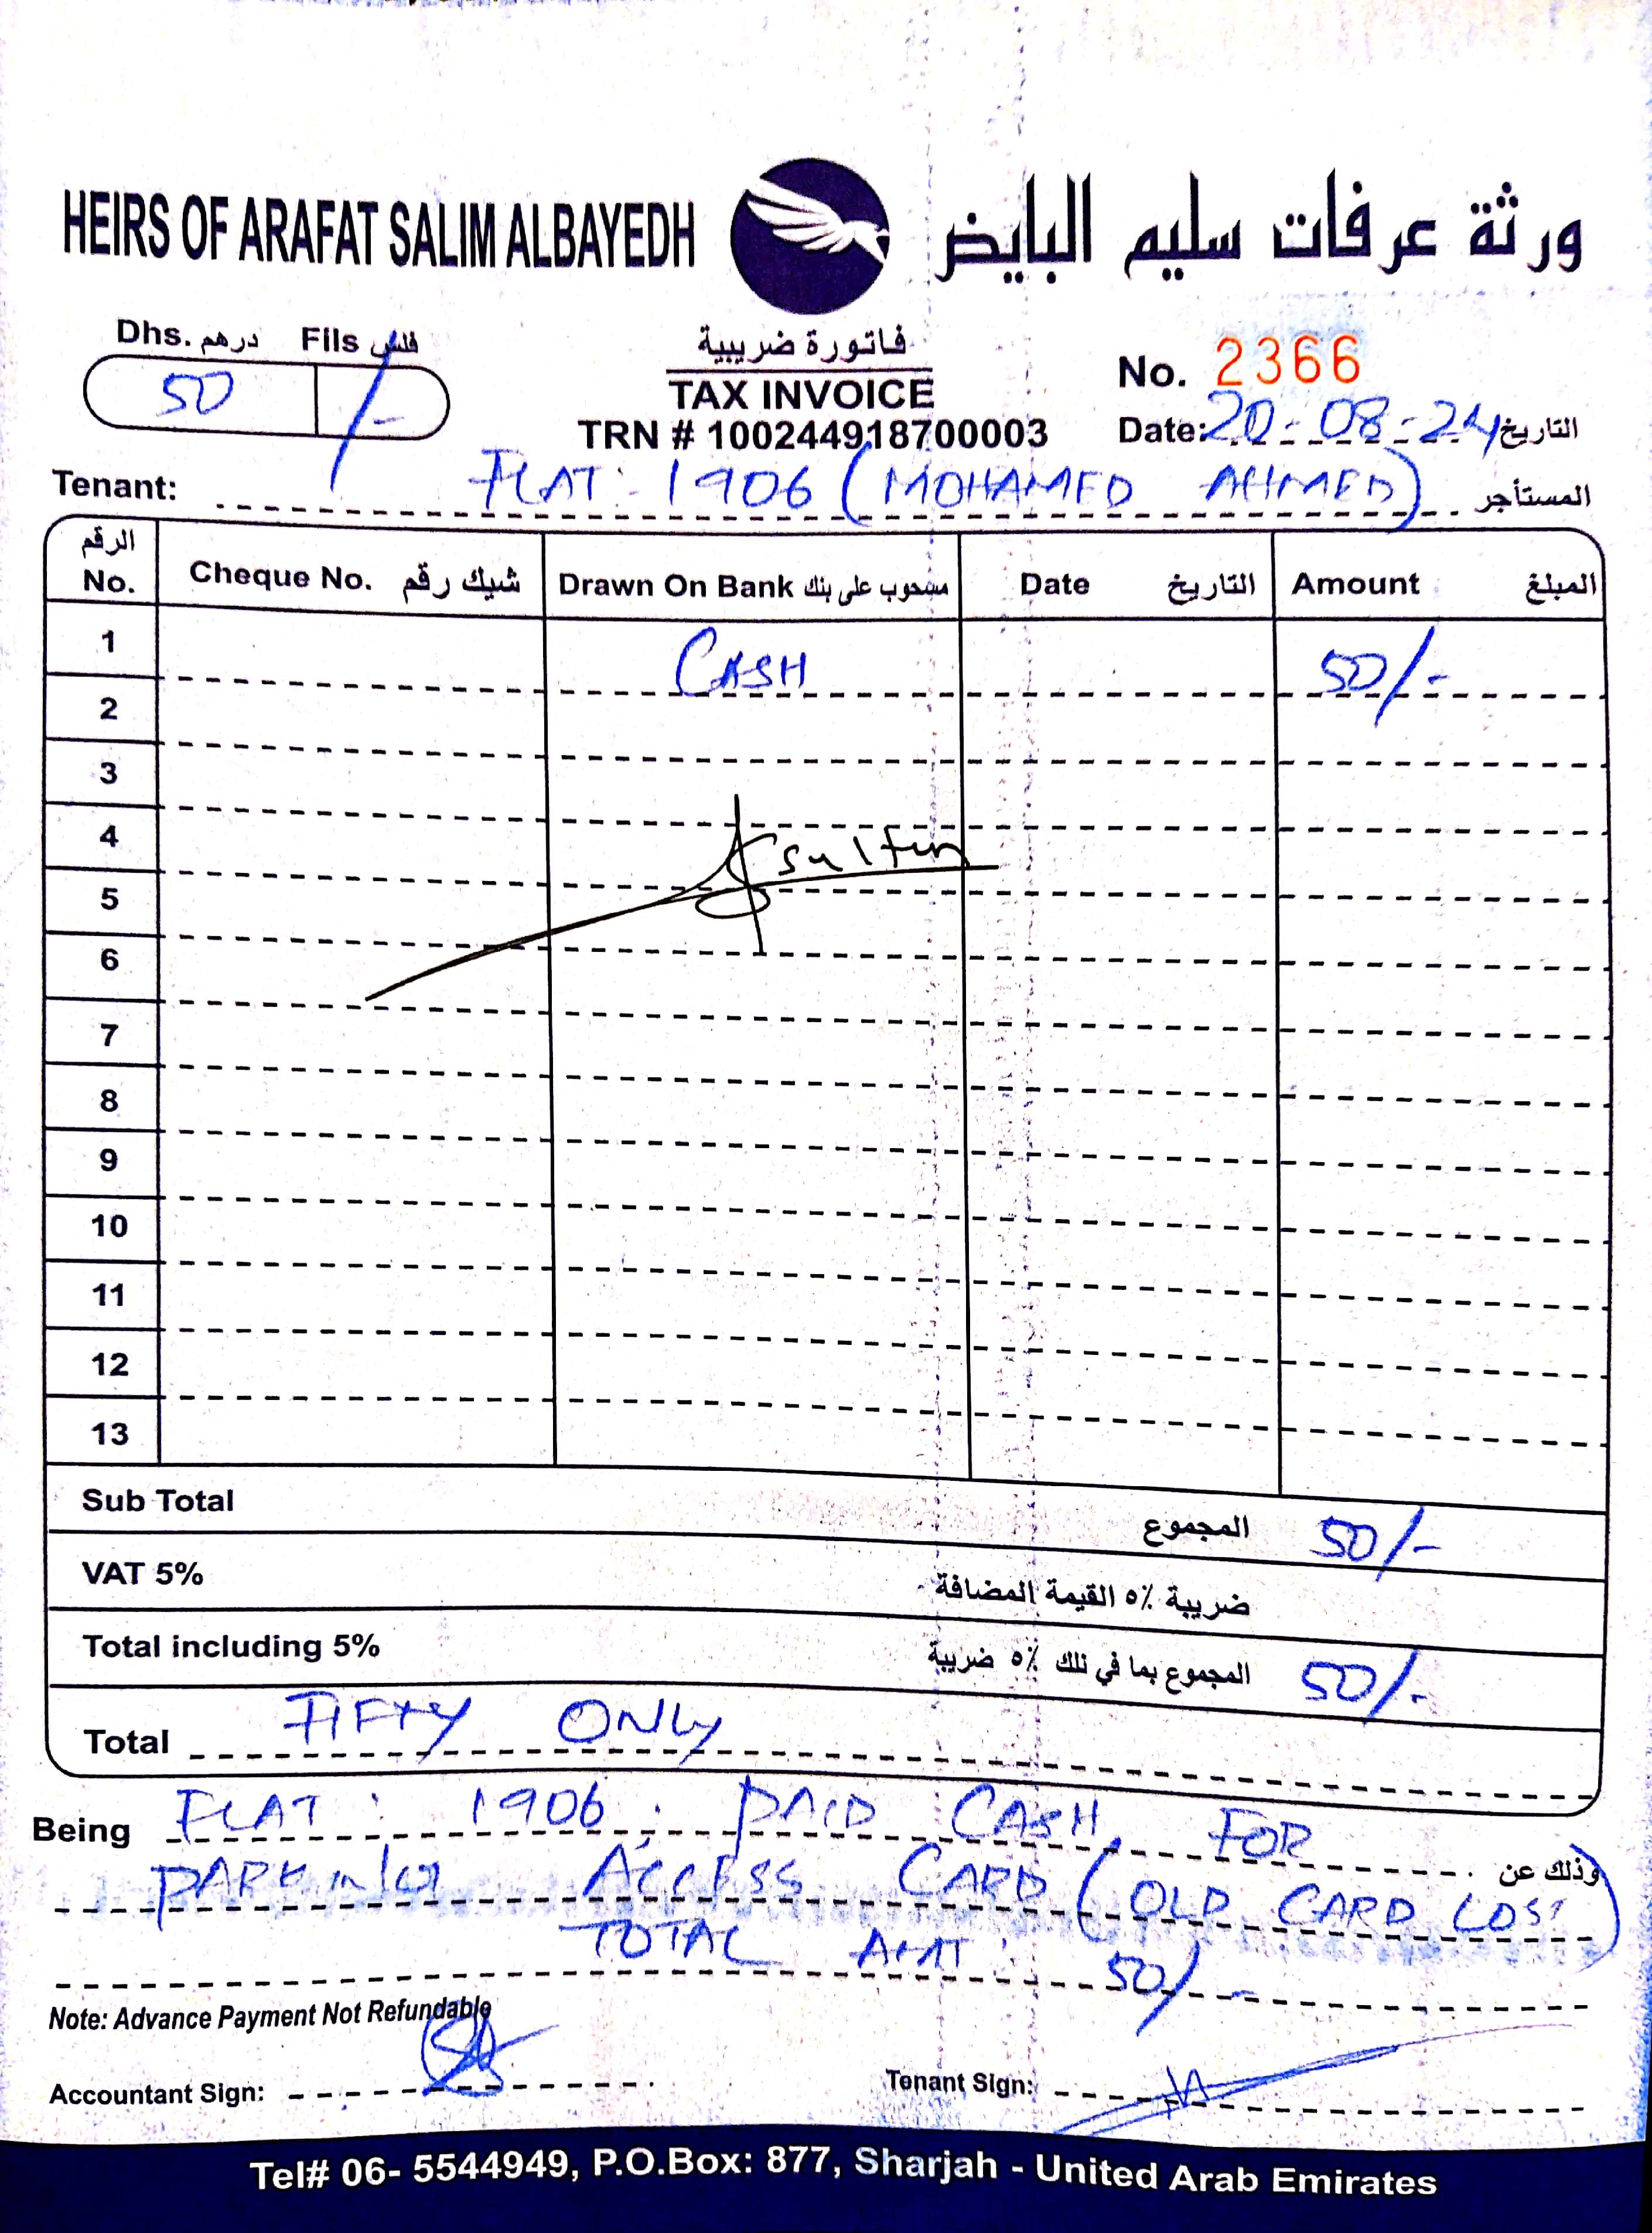 HEIRS OF ARAFAT SALIM ALBAYEDH ورثة عرفات سليم البايض
Dhs. درهم Fils فلس
50 /-
فاتورة ضريبية
TAX INVOICE
TRN # 100244918700003
No. 2366
Date: 20-08-24 التاريخ
Tenant: FLAT: 1906 (MOHAMED AHMED) المستأجر
الرقم No. Cheque No. شيك رقم Drawn On Bank مسحوب على بنك Date التاريخ Amount المبلغ
1 CASH 50/-
2
3
4 sultan
5
6
7
8
9
10
11
12
13
Sub Total المجموع 50/-
VAT 5% ضريبة ٥٪ القيمة المضافة
Total including 5% المجموع بما في ذلك ٥٪ ضريبة 50/-
Total FIFTY ONLY
Being FLAT: 1906: PAID CASH FOR وذلك عن
PARKING ACCESS CARD (OLD CARD LOST)
TOTAL AMT: 50/-
Note: Advance Payment Not Refundable
Accountant Sign: Tenant Sign:
Tel# 06- 5544949, P.O.Box: 877, Sharjah - United Arab Emirates